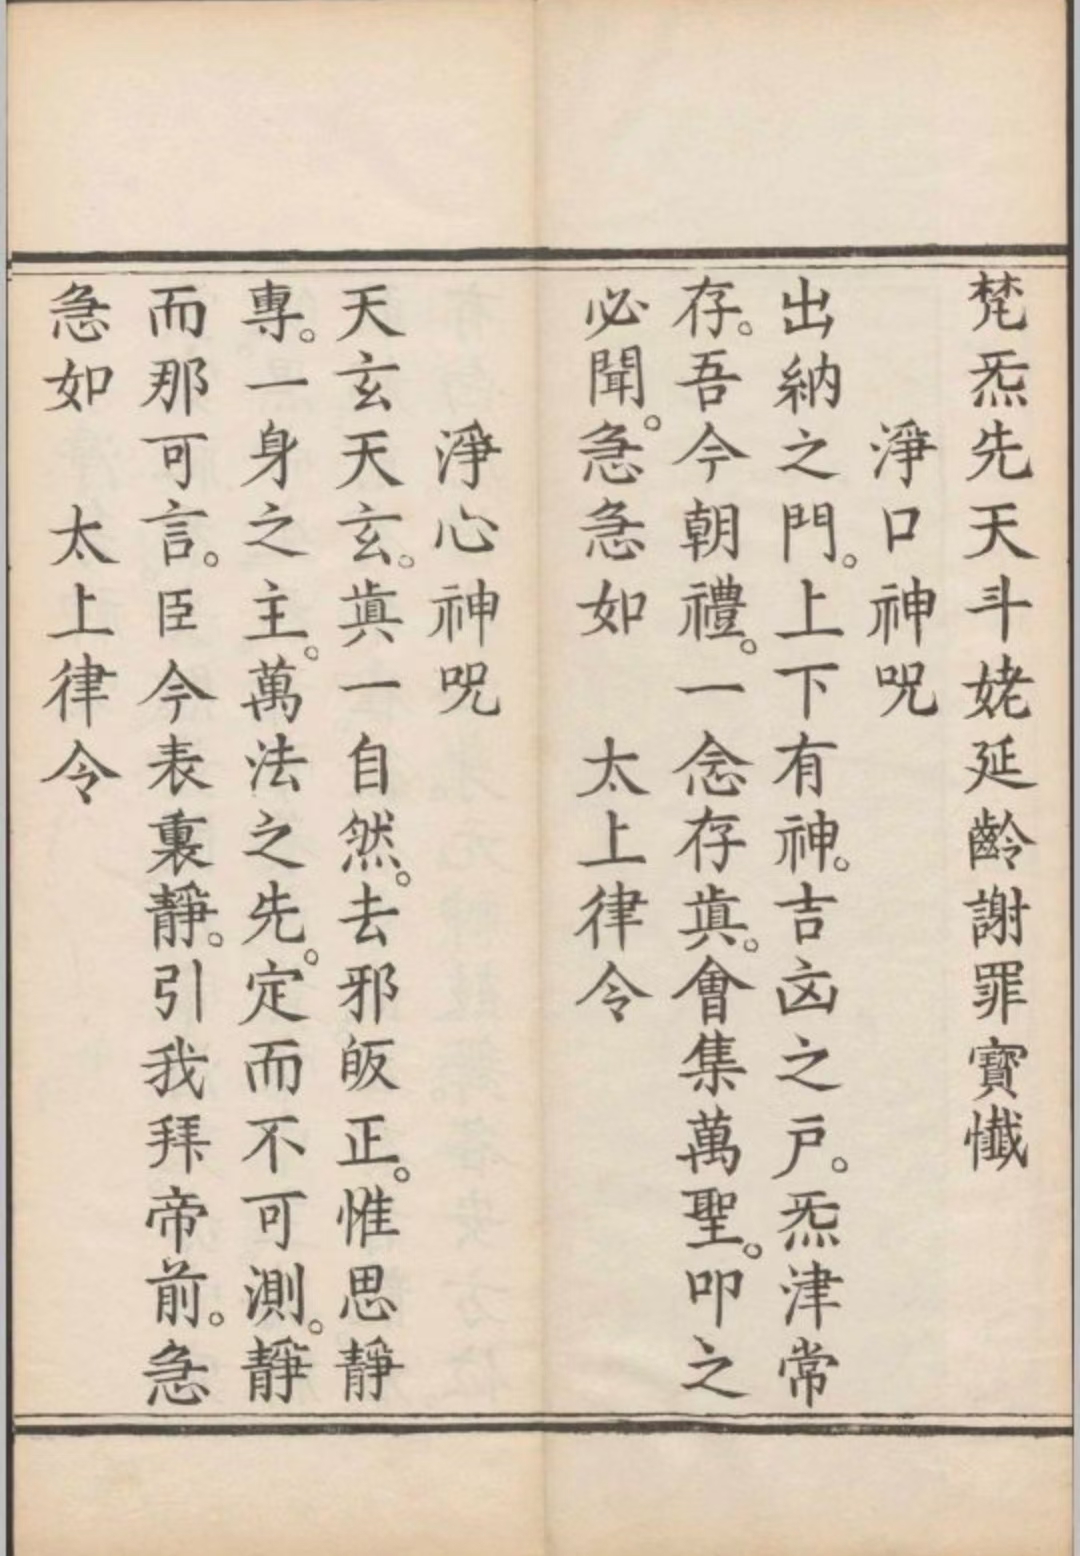 梵炁先天斗姥延齡謝罪寶懺
淨口神呪
出納之門。上下有神。吉㐫之戸。炁津常
存。吾今朝禮。一念存真。會集萬聖。叩之
必聞。急急如　太上律令
淨心神呪
天玄天玄。真一自然。去邪皈正。惟思静
專。一身之主。萬法之先。定而不可測。静
而那可言。臣今表裏静。引我拜帝前。急
急如　太上律令